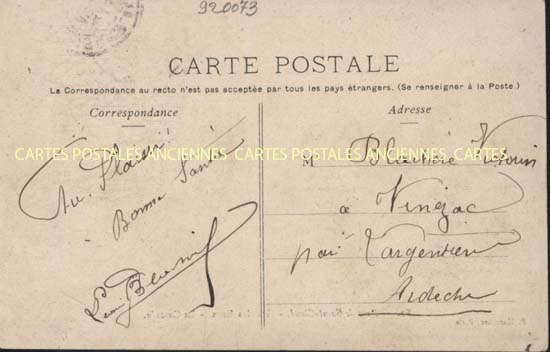 920073
CARTE POSTALE
La Correspondance au recto n'est pas acceptée par tous les pays étrangers. (Se renseigner à la Poste.)
Correspondance
Adresse
Au Plaisir
Bonne Santé
M
CARTES POSTALES ANCIENNES CARTES POSTALES ANCIENNES CARTES
à Vinezac
par Largentière
Ardèche